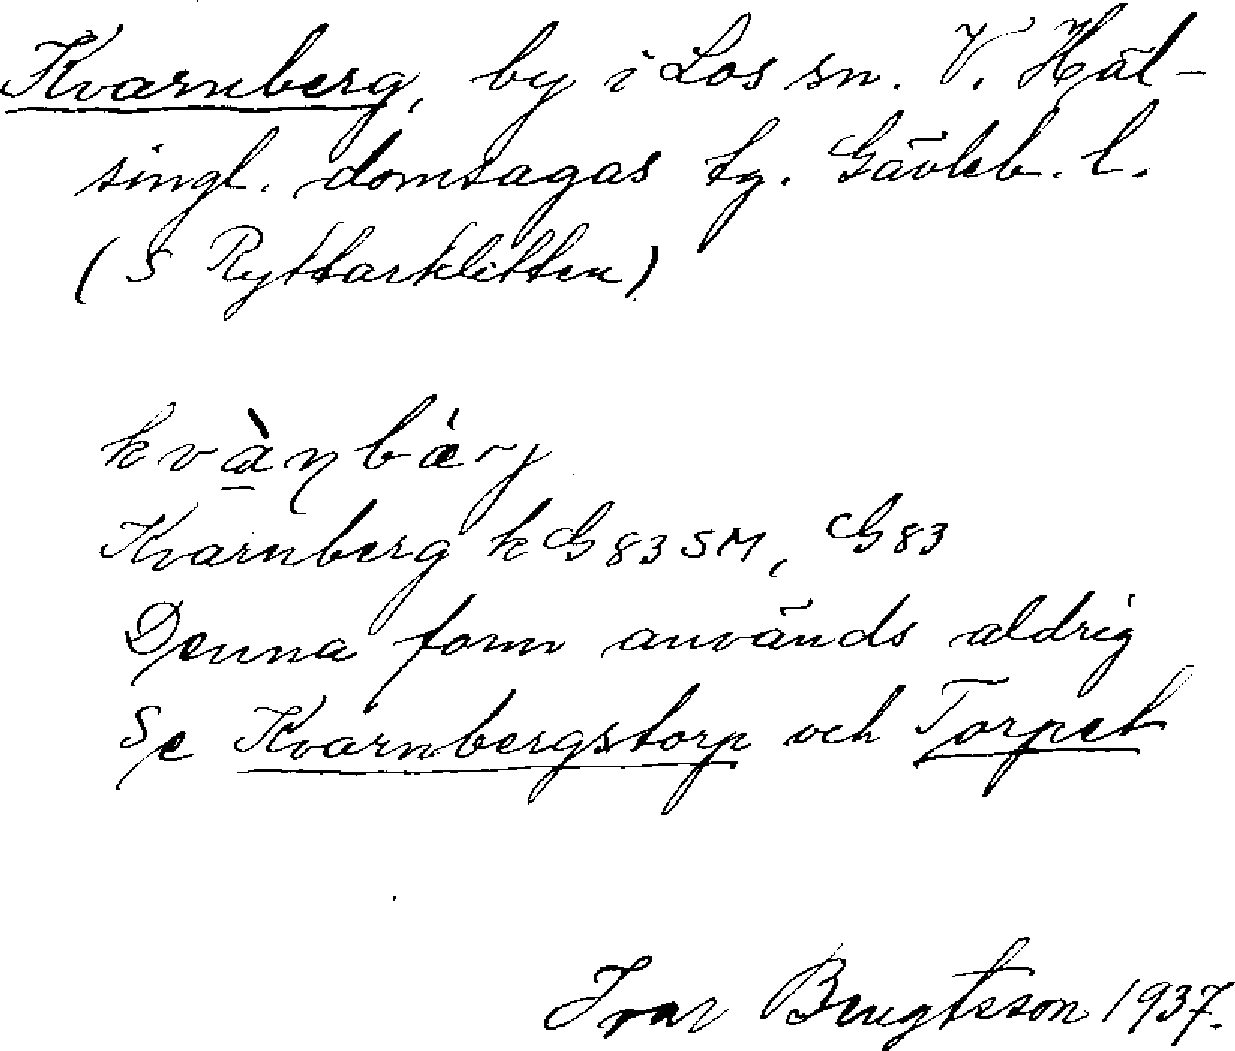 Kvarnberg, by i Los sn. V. Häl-
singl. domsagas tg. Gävleb. l.
(S Ryttarklitten)
kvànbærj
Kvarnberg k G 83 SM, G 83
Denna form används aldrig
Se Kvarnbergstorp och Torpet
Ivar Bengtsson 1937.